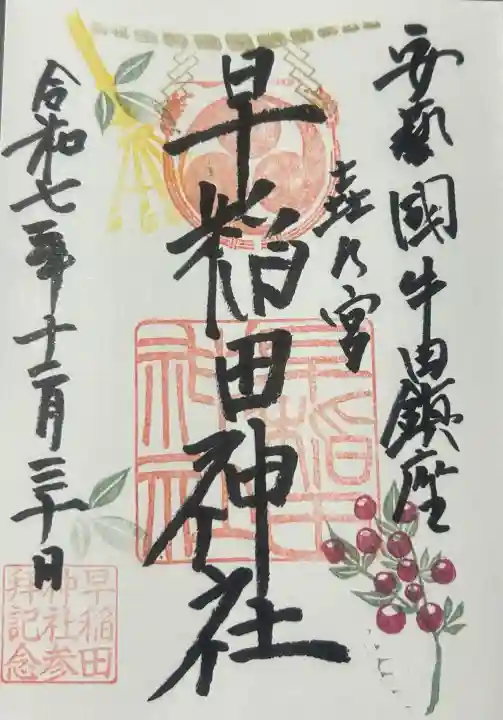 安藝國牛田鎮座
㐂乃宮
早稲田神社
令和七年十二月三十日
早稲田
神社
早稲田
神社参
拝記念